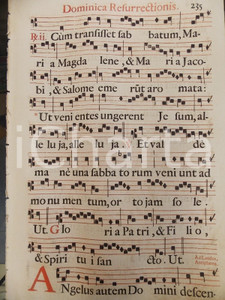 Dominica Resurrectionis. 235
R. ii. Cùm transisset sab batum, Ma-
ria Magda lene, & Ma ria Jaco-
bi, & Salome eme rūt aro mata:
Ut veni entes ungerent Je sum, al-
le lu ja, alle lu ja. Et val dè
ma nè una sabba to rum veni unt ad
mo nu men tum, or to jam so le.
Ut. Glo ri a Pa tri, & Fi li o,
& Spiri tu i san cto. Ut.
ANgelus autem Do mini descen-
iCharta